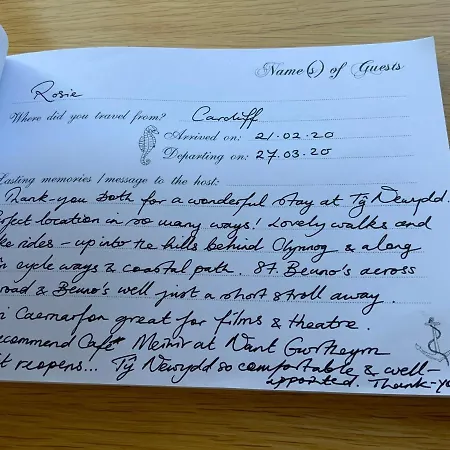 Name(s) of Guests
Rosie
Where did you travel from? Cardiff
Arrived on: 21.02.20
Departing on: 27.03.20
Lasting memories / message to the host:
Thank-you both for a wonderful stay at Tŷ Newydd.
location in so many ways! Lovely walks and
rides - up into the hills behind Clynnog & along
cycle ways & coastal path. St. Beuno's across
road & Beuno's well just a short stroll away.
Caernarfon great for films & theatre.
recommend Café Meinir at Nant Gwrtheyrn
it reopens... Tŷ Newydd so comfortable & well-
appointed. Thank-yo